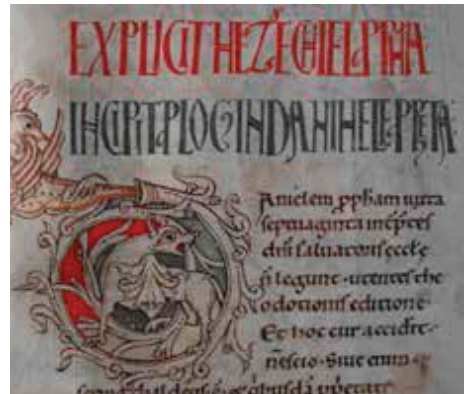 EXPLICIT HEZECHIEL PPHA
INCIPIT PLOG IN DANIHELE PPHETA
Anielem ꝓpham iuxta
septuaginta int̄p̄tes
dn̄i saluatoris eccle̜
n̄ legunt · utentes the
odotionis editione·
Et hoc cur accidr̄t·
nescio · Siue enim